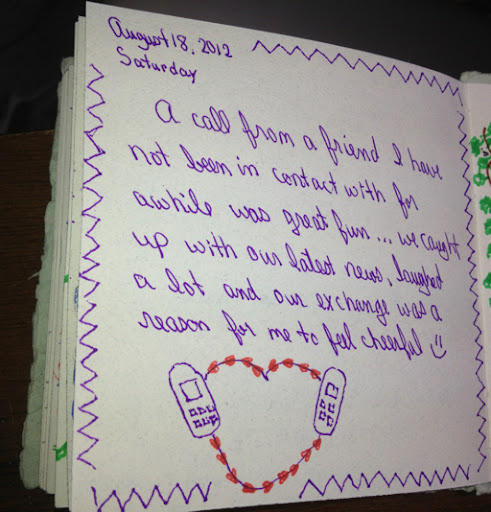 August 18, 2012
Saturday
A call from a friend I have
not been in contact with for
awhile was great fun... we caught
up with our latest news, laughed
a lot and our exchange was a
reason for me to feel cheerful